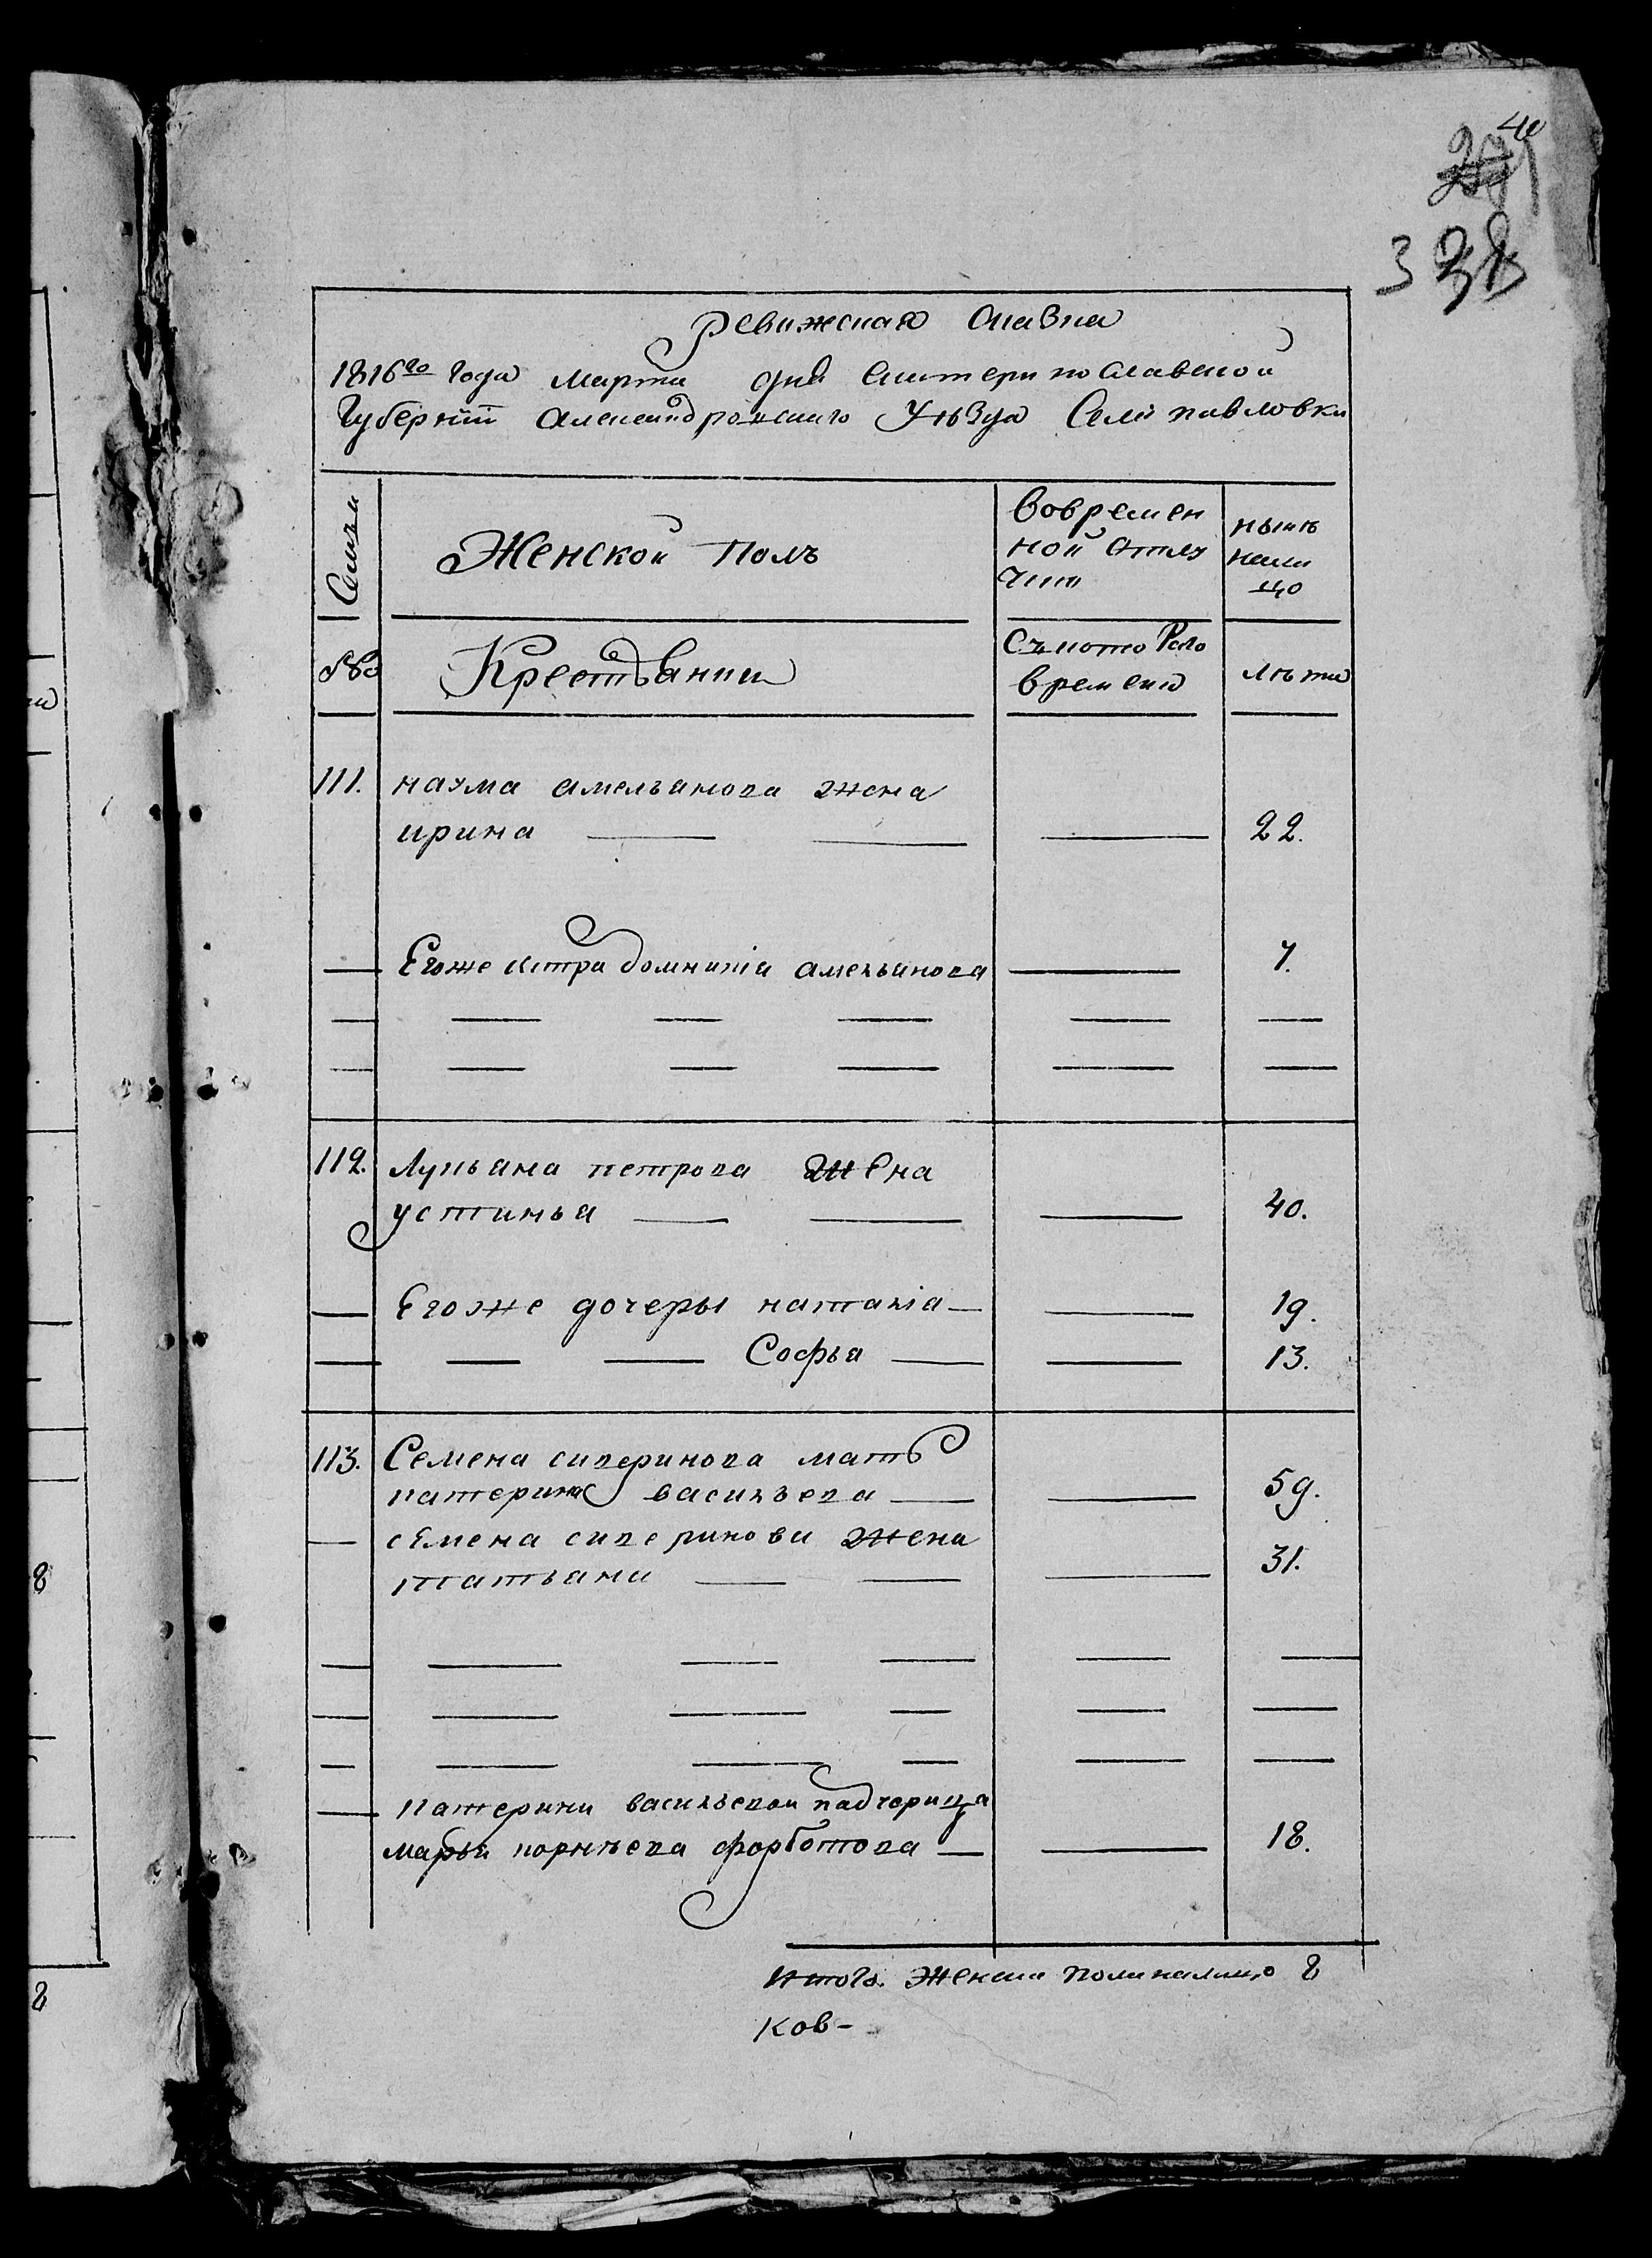 338
ревижская сказка
1816го года марта дня екатеринославской
Губернїи александровскаго уѣзда Села павловки
Семьи
Женской Полъ
Вовремен
ной отлу
чки
нынѣ
нали
цо
№
Крестьянии
Съкотораго
времени
лѣта
111. наума амельянова жена
ирина 22.
Егоже сестра домникіа амельянова 7.
112. Лукьяна петрова жена
устинья 40.
Егоже дочеры наталіа 19.
Софья 13.
113. Семена сиверинова мать
катерина васильева 59.
семена сиверинова жена
татьяна 31.
катерины васильевой падчерица
марья корнѣева форботова 18.
Итого. женска пола налицо 8
ков-
8
8